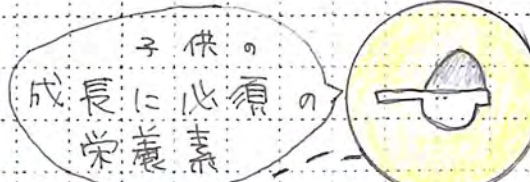 子供の
成長に必須の
栄養素